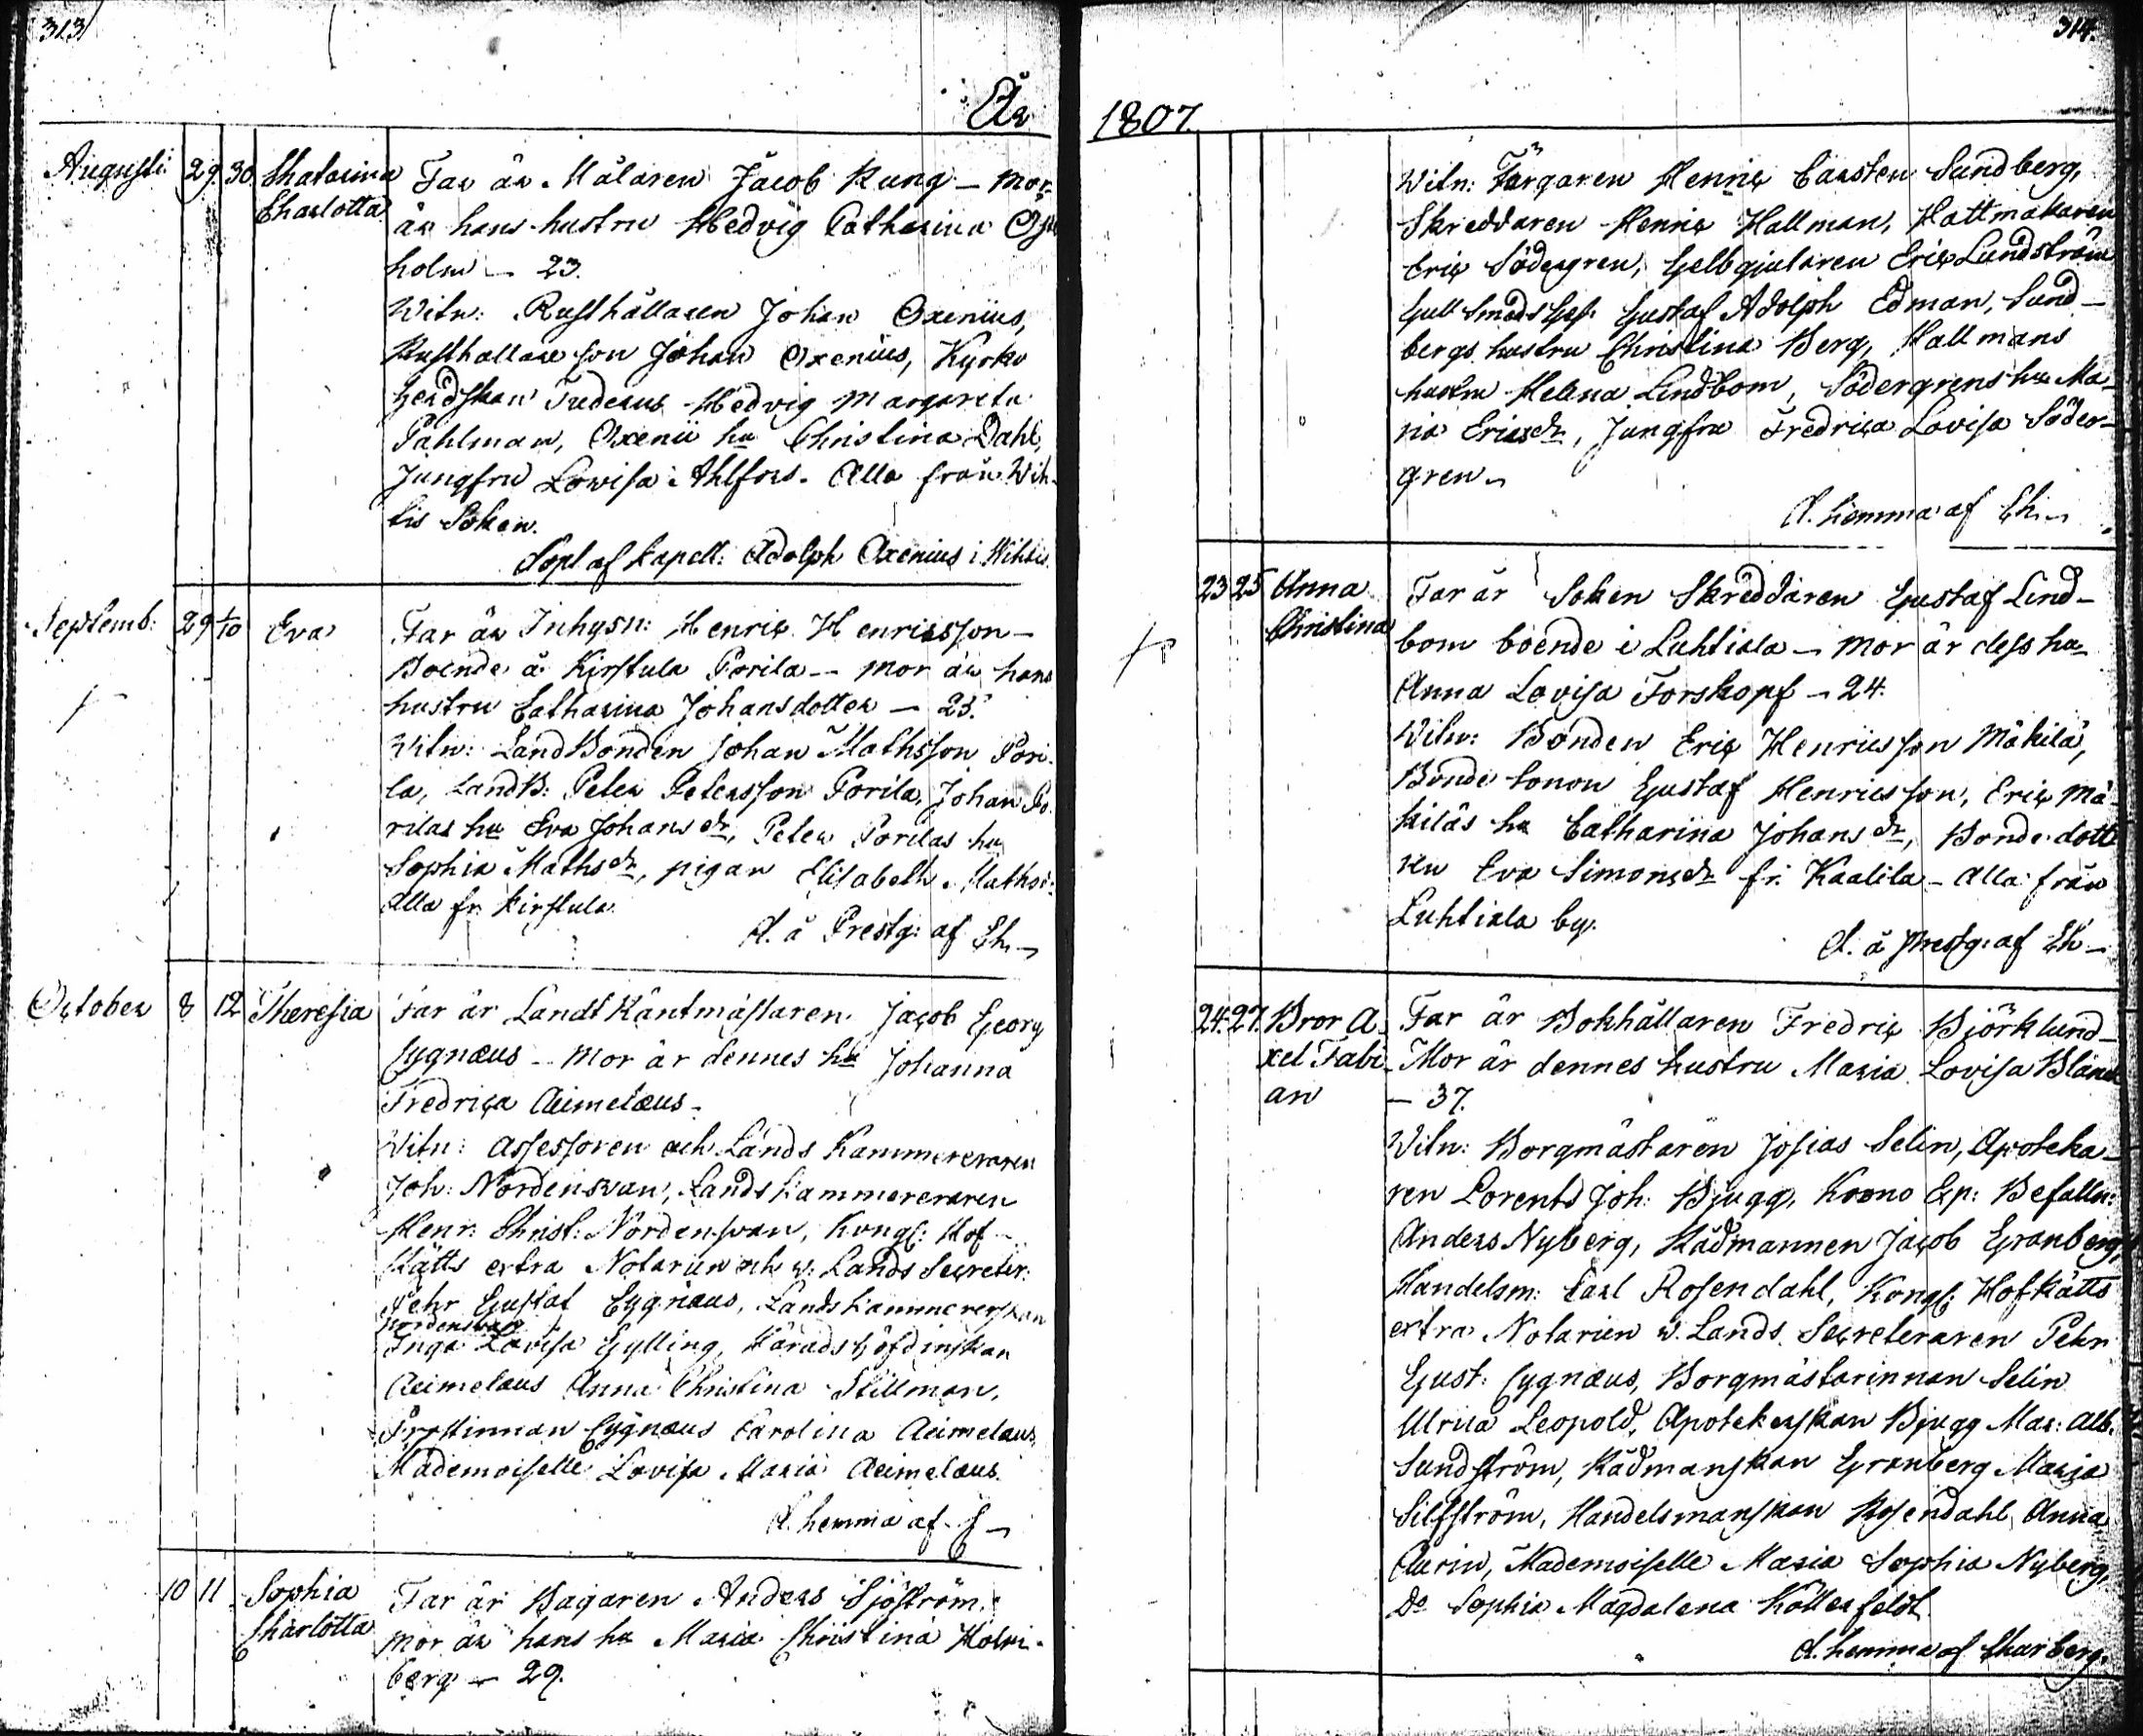 313
År
Augusti 29. 30. Chatarina Far är Målaren Jacob Kung – Mor
Charlotta är hans hustru Hedvig Catharina
holm – 23.
Witn: Rusthållaren Johan Oxenius,
Rusthållare son Johan Oxenius, Kyrko
herdskan Tuderus Hedvig Margareta
Påhlman, Oxenii hu Christina Dahl,
Jungfru Lovisa Ahlfors. Alla från Wih-
tis Soken.
Döpt af Kapell: Adolph Oxenius i Wihtis.
Septemb: 29 1/10 Eva Far är Inhysn: Henric Henricsson –
Boende å Kirstula Porila – mor är hans
hustru Catharina Johansdotter – 23.
Witn: LandBonden Johan Mathsson Pori-
la, LandB: Peter Petersson Porila, Johan Po-
rilas hu Eva Johansdr, Peter Porilas hu
Sophia Mathsdr, pigan Elisabeth Mathsd:
alla fr. Kirstula.
d. å Prestg: af Eh –
October 8 12 Theresia Far är Landt Räntmästaren Jacob Georg
Cygnæus – Mor är dennes hu Johanna
Fredrica Aeimelæus –
Witn: Assessoren och Lands Kammereraren
Joh: Nordensvan, Landskammereraren
Henr: Christ: Nordensvan, Kongl: Hof-
Rätts extra Notarien och v. Lands Secreter:
Pehr Gustaf Cygnæus, Landskammererskan
Nordensvan
Inga Lovisa Gylling, Häradshöfdinskan
Aeimelæus Anna Christina Stillman,
Prostinnan Cygnæus Carolina Aeimelæus,
Mademoiselle Lovisa Maria Aeimelæus.
d. hemma af
10 11 Sophia Far är Bagaren Anders Sjöström.
Charlotta mor är hans hu Maria Christina Holm-
berg – 29.
314.
1807.
Witn: Färgaren Henric Carsten Sundberg,
Skreddaren Henric Hallman, Hattmakaren
Eric Södergren, Gelbgjutaren Eric Lundström
Gullsmeds Ges. Gustaf Adolph Edman, Sund-
bergs hustru Christina Berg, Hallmans
hustru Helena Lindbom, Södergrens hu Ma-
ria Ericsdr, Jungfru Fredrica Lovisa Söder-
gren –
d. hemma af Eh. –
23 25 Anna Far är Soken Skreddaren Gustaf Lind-
Christina bom boende i Luhtiala – Mor är dess hu
Anna Lovisa Forskopf – 24.
Witn: Bonden Eric Henricsson Mäkilä,
Bonde sonen Gustaf Henricsson, Eric Mä-
kiläs hu Catharina Johansdr, Bonde dotte
ren Eva Simonsdr fr. Kaalila – Alla från
Luhtiala by.
d. å prestg: af Eh –
24. 27. Bror A- Far är Bokhållaren Fredric Björklund –
xel Fabi- Mor är dennes hustru Maria Lovisa
an – 37.
Witn: Borgmästaren Josias Selin, Apoteka-
ren Lorents Joh: Bjugg, Krono Exp: Befalln:
Anders Nyberg, Rådmannen Jacob Granberg,
Handelsm: Carl Rosendahl, Kongl: HofRätts
extra Notarien v. Lands Secreteraren Pehr
Gust: Cygnæus, Borgmästarinnan Selin
Ulrica Leopold, Apotekerskan Bjugg Mar: Alb.
Sundström, Rådmanskan Granberg Maria
Silfström, Handelsmanskan Rosendahl Anna
Aurin, Mademoiselle Maria Sophia Nyberg,
Do Sophia Magdalena
d. hemma af